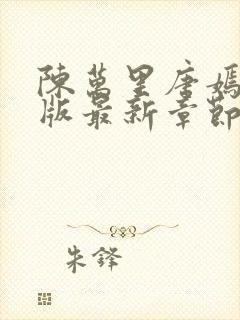 陳萬里唐嫣
版最新章節
朱鋒